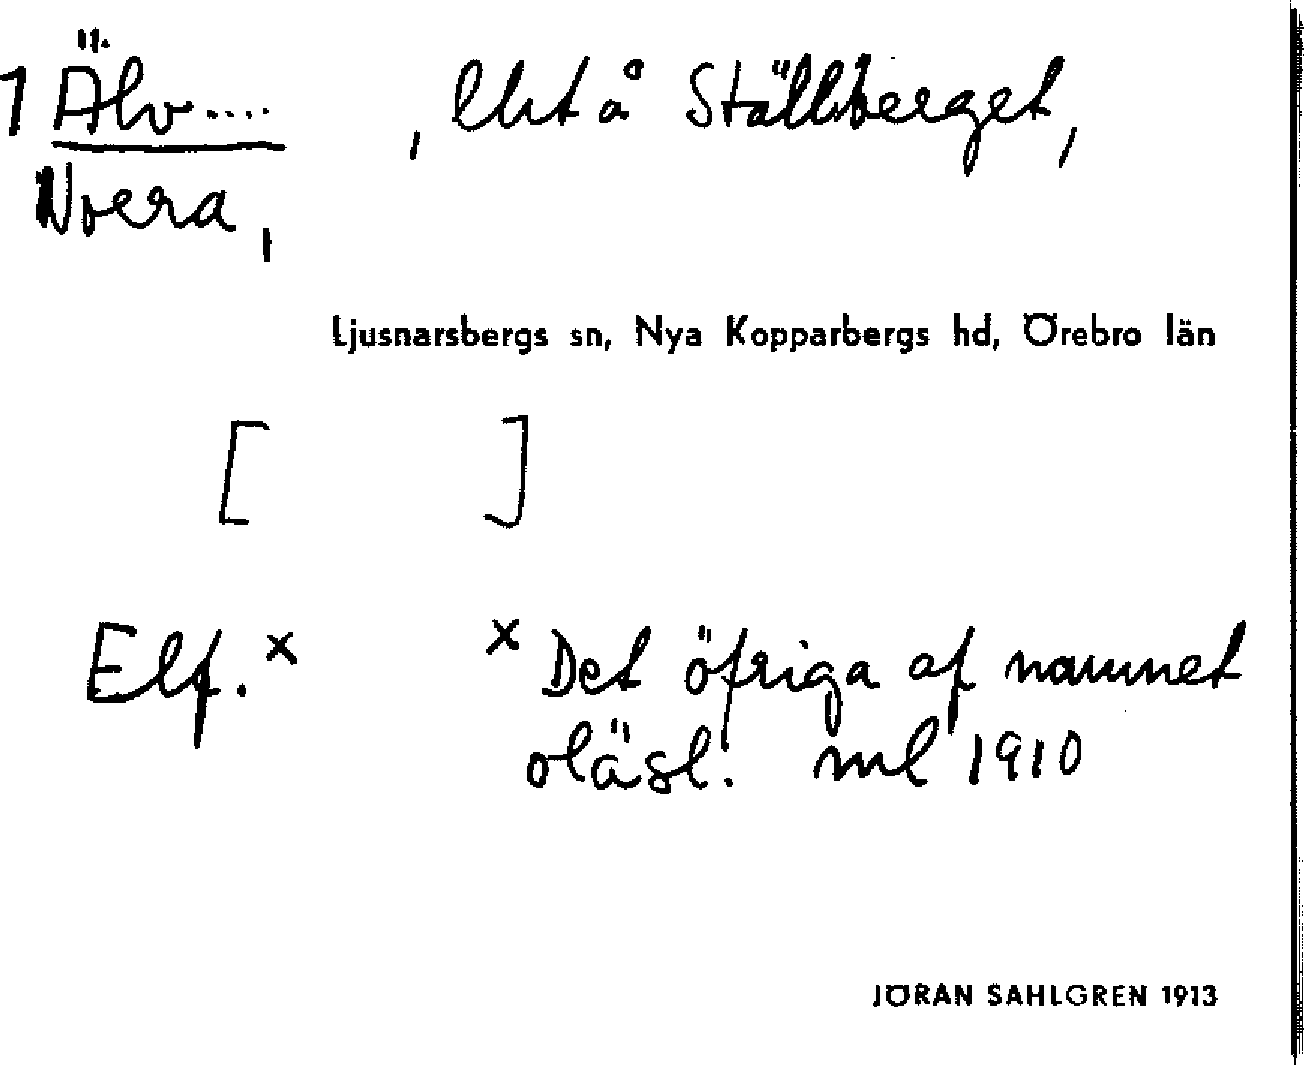 1 Älv.... , lht å Ställberget,
Norra,
Ljusnarsbergs sn, Nya Kopparbergs hd, Örebro län
[ ]
Elf.× × Det öfriga af namnet
oläsl. ml 1910
JÖRAN SAHLGREN 1913